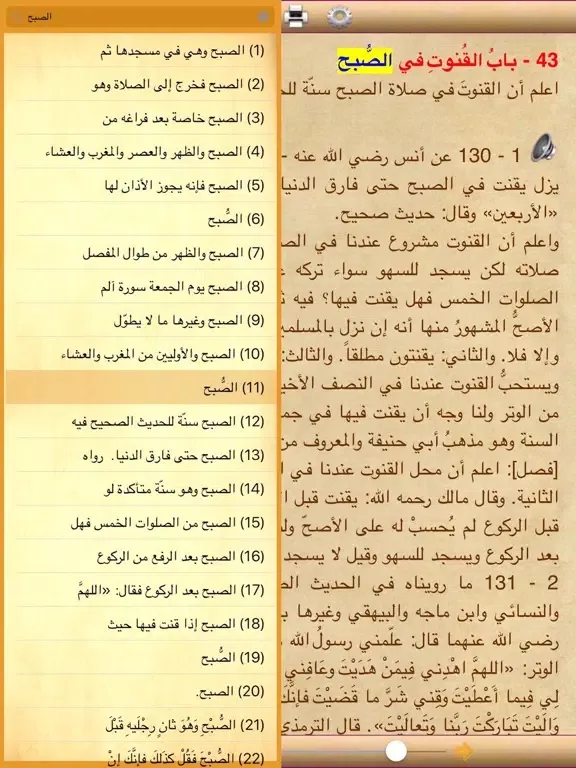 الصبح
(1) الصبح وهي في مسجدها ثم
(2) الصبح فخرج إلى الصلاة وهو
(3) الصبح خاصة بعد فراغه من
(4) الصبح والظهر والعصر والمغرب والعشاء
(5) الصبح فإنه يجوز الأذان لها
(6) الصُّبح
(7) الصبح والظهر من طوال المفصل
(8) الصبح يوم الجمعة سورة ألم
(9) الصبح وغيرها ما لا يطوّل
(10) الصبح والأوليين من المغرب والعشاء
(11) الصُّبح
(12) الصبح سنّة للحديث الصحيح فيه
(13) الصبح حتى فارق الدنيا. رواه
(14) الصبح وهو سنّة متأكدة لو
(15) الصبح من الصلوات الخمس فهل
(16) الصبح بعد الرفع من الركوع
(17) الصبح بعد الركوع فقال: «اللهمَّ
(18) الصبح إذا قنت فيها حيث
(19) الصُّبح
(20) الصبح.
(21) الصُّبْحِ وَهُوَ ثانٍ رِجْلَيهِ قَبْلَ
(22) الصُّبْحَ فَقُلْ كذلكَ فإنَّكَ إنْ
43 - بابُ القُنوتِ في الصُّبح
اعلم أن القنوتَ في صلاة الصبح سنّة
1 - 130 عن أنس رضي الله عنه -
يزل يقنت في الصبح حتى فارق الدنيا
«الأربعين» وقال: حديث صحيح.
واعلم أن القنوت مشروع عندنا في
صلاته لكن يسجد للسهو سواء تركه
الصلوات الخمس فهل يقنت فيها؟ فيه
الأصحُّ المشهورُ منها أنه إن نزل بالمسلمين
وإلا فلا. والثاني: يقنتون مطلقاً. والثالث:
ويستحبُّ القنوت عندنا في النصف
من الوتر ولنا وجه أن يقنت فيها في
السنة وهو مذهبُ أبي حنيفة والمعروف من
[فصل]: اعلم أن محل القنوت عندنا في
الثانية. وقال مالك رحمه الله: يقنت قبل
قبل الركوع لم يُحسبْ له على الأصحّ
بعد الركوع ويسجد للسهو وقيل لا يسجد
2 - 131 ما رويناه في الحديث
والنسائي وابن ماجه والبيهقي وغيرها
رضي الله عنهما قال: علّمني رسولُ الله
الوتر: «اللهمَّ اهْدِني فِيمَنْ هَدَيْتَ وَعَافِني
لي فِيما أَعْطَيْتَ وَقِني شَرَّ ما قَضَيْتَ فإنَّكَ
وَالَيْتَ تَبَارَكْتَ رَبَّنا وَتَعالَيْتَ». قال الترمذي